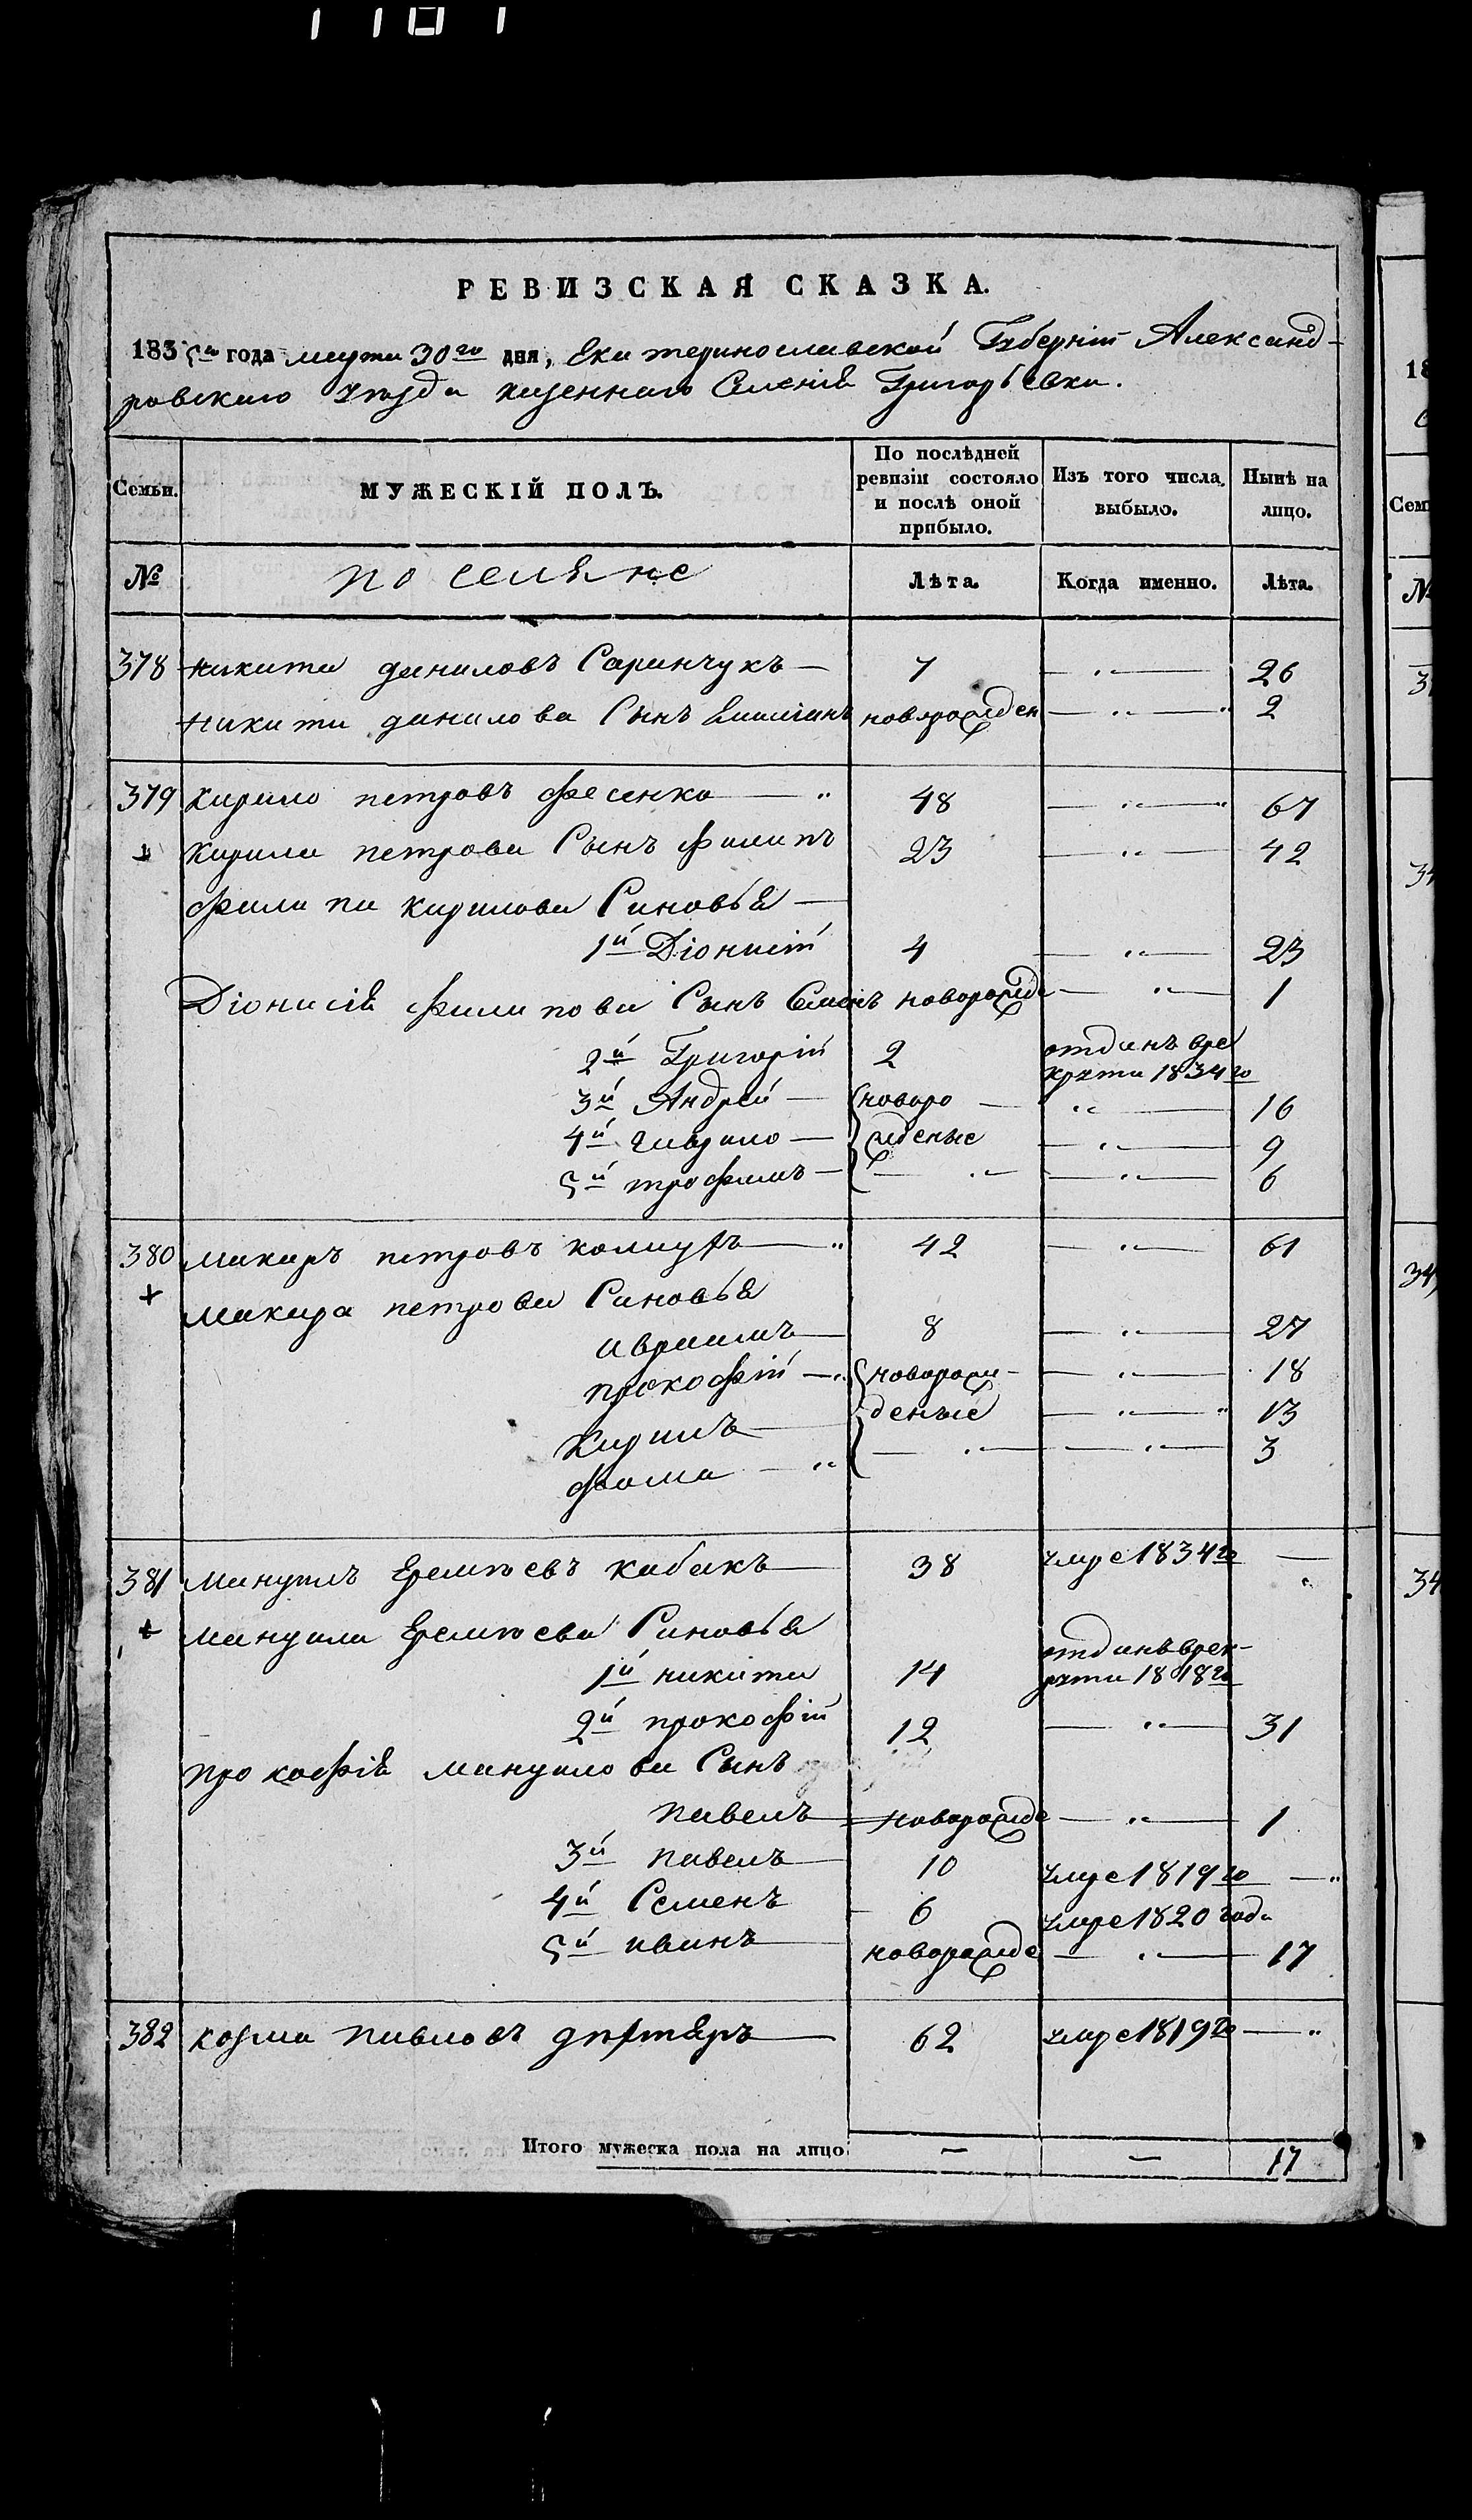 РЕВИЗСКАЯ СКАЗКА.
1835го года марта 30го дня, Екатеринославской Губерніи Александ-
ровскаго уезда казеннаго Селенія Григорьевки.
Семьи. МУЖЕСКІЙ ПОЛЪ. По послѣдней ревизіи состояло и послѣ оной прибыло. Изъ того числа выбыло. Нынѣ на лицо.
№ поселяне Лѣта. Когда именно. Лѣта.
378 Никита даниловъ Саринчукъ — 7 — „ — 26
Никиты данилова Сынъ новорожден — „ — 2
379 Кирило петровъ Фесенко — „ 48 — „ — 67
Кирила петрова Сынъ Филипъ 23 — „ — 42
Филипа Кирилова Синовья —
1й Діонисій 4 — „ — 23
Діонисія Филипова Сынъ Семенъ новорожде — „ — 1
2й Григорій 2 отданъ вре
круты 1834го
3й Андрей — новоро — „ — 16
4й гаврило — жденые — „ — 9
5й трофимъ — — „ — — „ — 6
380 макаръ петровъ — „ 42 — „ — 61
+ макара петрова Синовья
авраамъ — 8 — „ — 27
прокофій — „ новорож- — „ — 18
Кирилъ — деныє — „ — 13
фома — „ — „ — — „ — 3
381 мануилъ Еремѣевъ кабакъ — 38 умре 1834го — „
+ мануила Еремѣева Синовья
1й никита 14 отданъ врек-
руты 1818го
2й прокофій 12 — „ — 31
прокофія мануилова Сынъ
павелъ — новорожде — „ — 1
3й павелъ — 10 умре 1819го — „
4й Семенъ 6 умре 1820 года
5й иванъ — новорожде — „ — 17
382 козма павловъ дѣхтяръ — 62 умре 1819го — „
Итого мужеска пола на лицо. — — 17